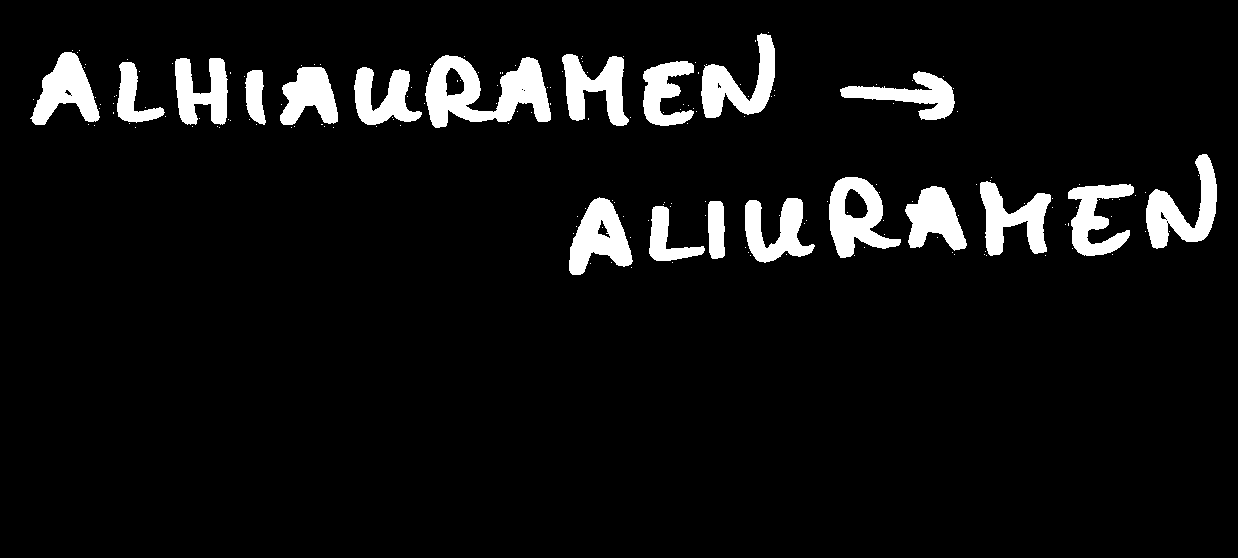 ALHIAURAMEN →
ALIURAMEN